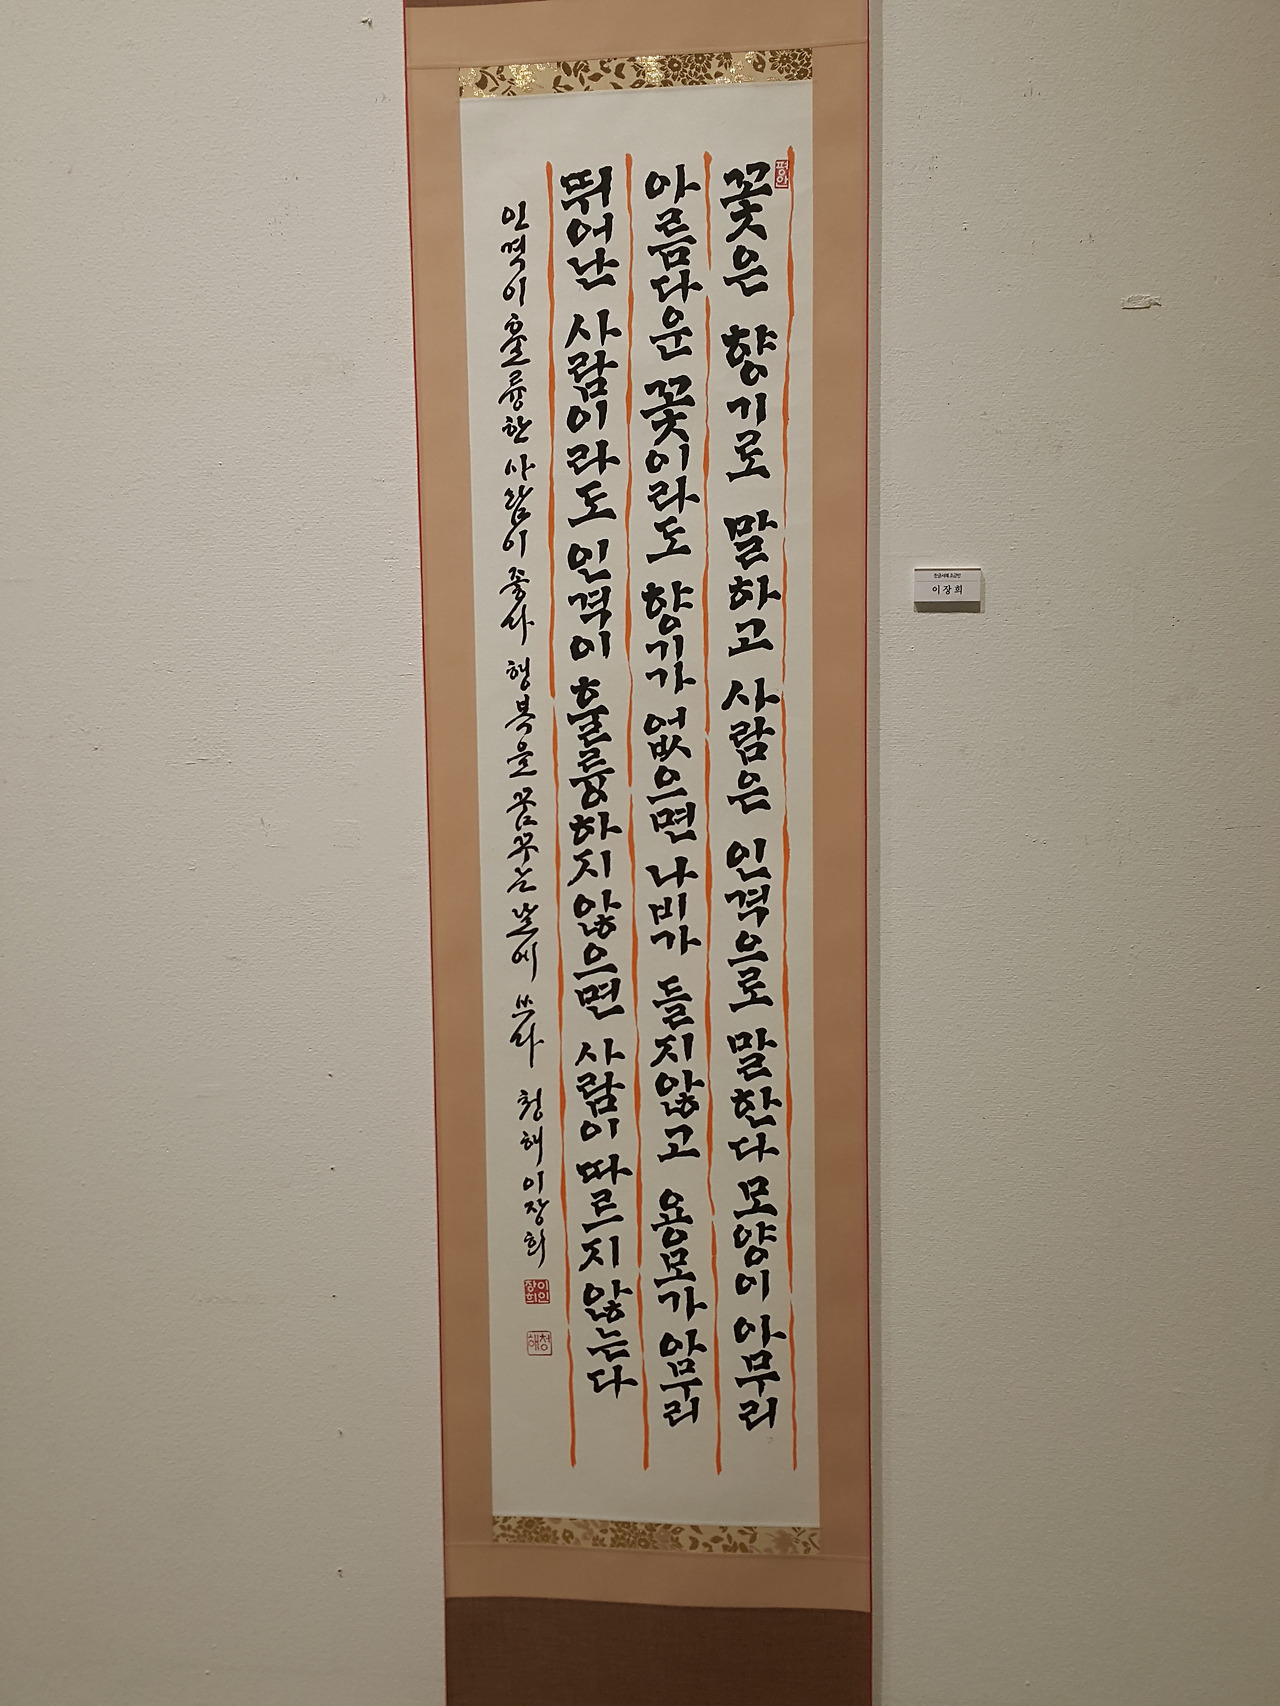 평안
꽃은 향기로 말하고 사람은 인격으로 말한다 모양이 아무리
아름다운 꽃이라도 향기가 없으면 나비가 들지않고 용모가 아무리
뛰어난 사람이라도 인격이 훌륭하지 않으면 사람이 따르지 않는다
인격이 훌륭한 사람이 좋아 행복을 꿈꾸는 날에 쓰다 청해 이장희
이인
장희
청해
한글서예 초급반
이장희